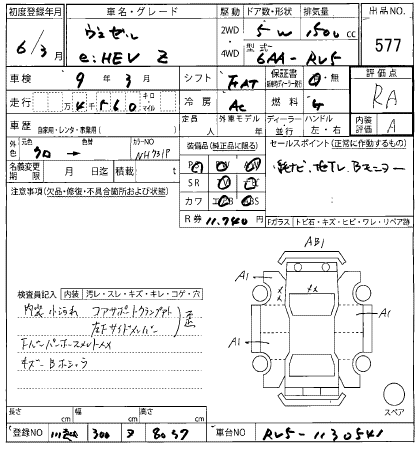 初度登録年月 車名・グレード 駆動 ドア数・形状 排気量 出品NO.
6/3月 ヴェゼル 2WD 5W 1500cc 577
e:HEV Z 4WD 型式 6AA-RV5
車検 9年3月 シフト FAT 保証書 有・無 評価点
走行 万 4560 キロ マイル 冷房 AC 燃料 G RA
車歴 自家用・レンタ・事業用( ) 定員 人 外車モデル 年 ディーラー 並行 ハンドル 左・右 内装評価 A
外色 元色 クロ → 色替 カラーNO NH731P
装備品(純正品に限る) セールスポイント(正常に作動するもの)
名義変更期限 月 日迄 積載 t
純ナビ、地TV、Bモニター
注意事項(欠品・修復・不具合箇所および状態)
SR
カワ ABS
R券 11.740円
Fガラス トビ石・キズ・ヒビ・ワレ・リペア跡
AB1
A1 A1
A1 A1
検査員記入 内装 汚レ・スレ・キズ・キレ・コゲ・穴
内装小汚れ コアサポートクランプ
左下サイドメンバー
歪
スペア
長さ cm 幅 cm 高さ cm
登録NO 300 8057 車台NO RV5-1130541